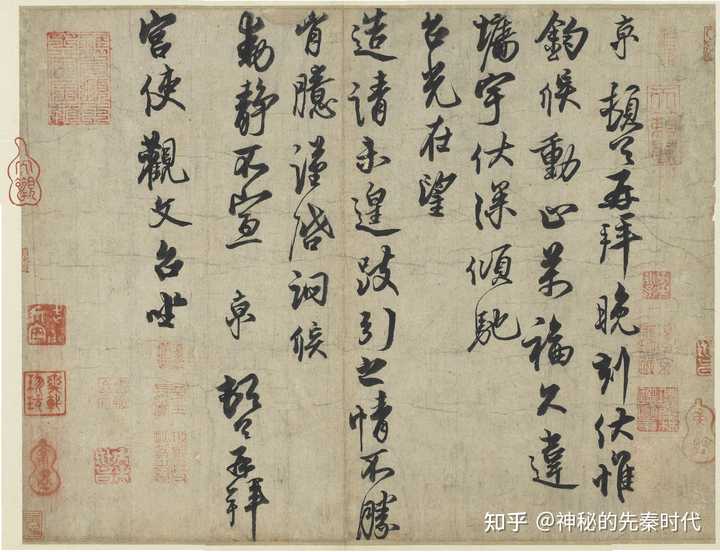 京 頓首再拜晚刻伏惟
鈞候動止萬福久違
墉宇伏深傾馳
台光在望
造請未遑跂引之情不勝
胷臆謹啓詢候
動靜不宣 京 頓首再拜
宮使觀文台坐
知乎 @神秘的先秦时代